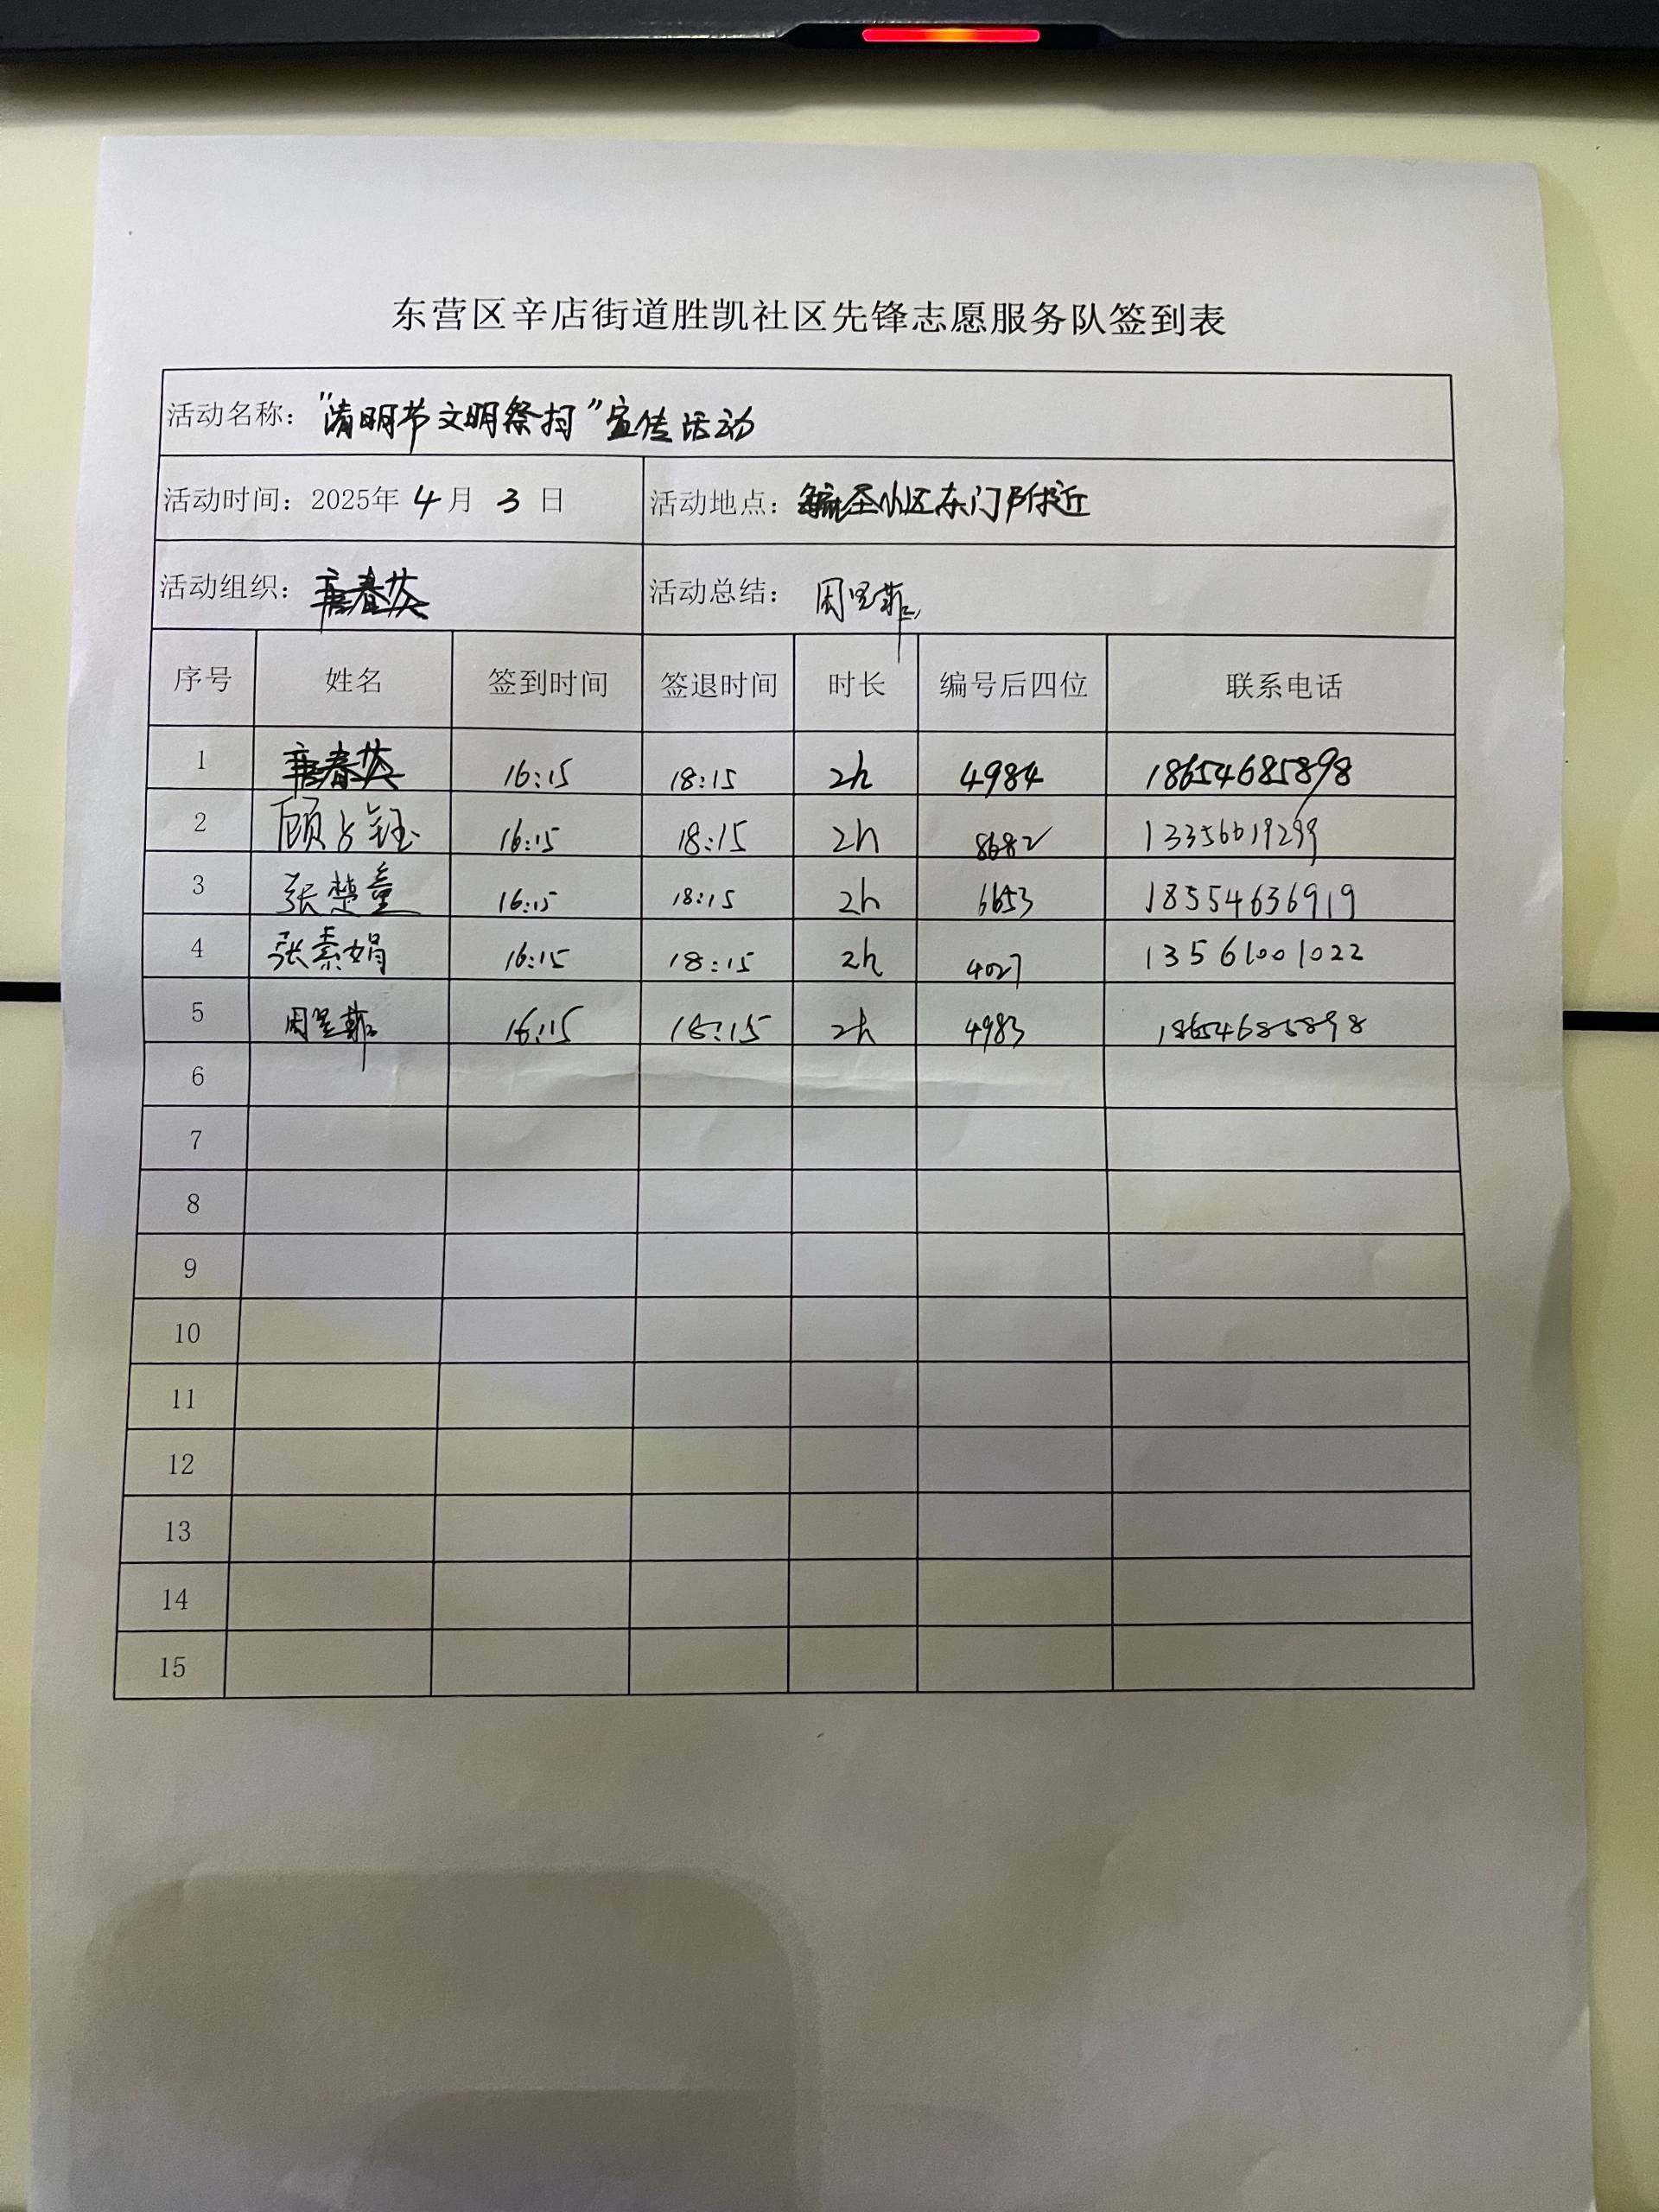 东营区辛店街道胜凯社区先锋志愿服务队签到表
活动名称：“清明节文明祭扫”宣传活动
活动时间：2025年 4 月 3 日 活动地点：小区东门附近
活动组织： 春英 活动总结：周
序号 姓名 签到时间 签退时间 时长 编号后四位 联系电话
1 春英 16:15 18:15 2h 4984 18654685898
2 顾占钰 16:15 18:15 2h 8682 13356619299
3 张楚童 16:15 18:15 2h 6653 18554636919
4 张素娟 16:15 18:15 2h 4027 13561001022
5 周 16:15 18:15 2h 4983 18654685898
6
7
8
9
10
11
12
13
14
15